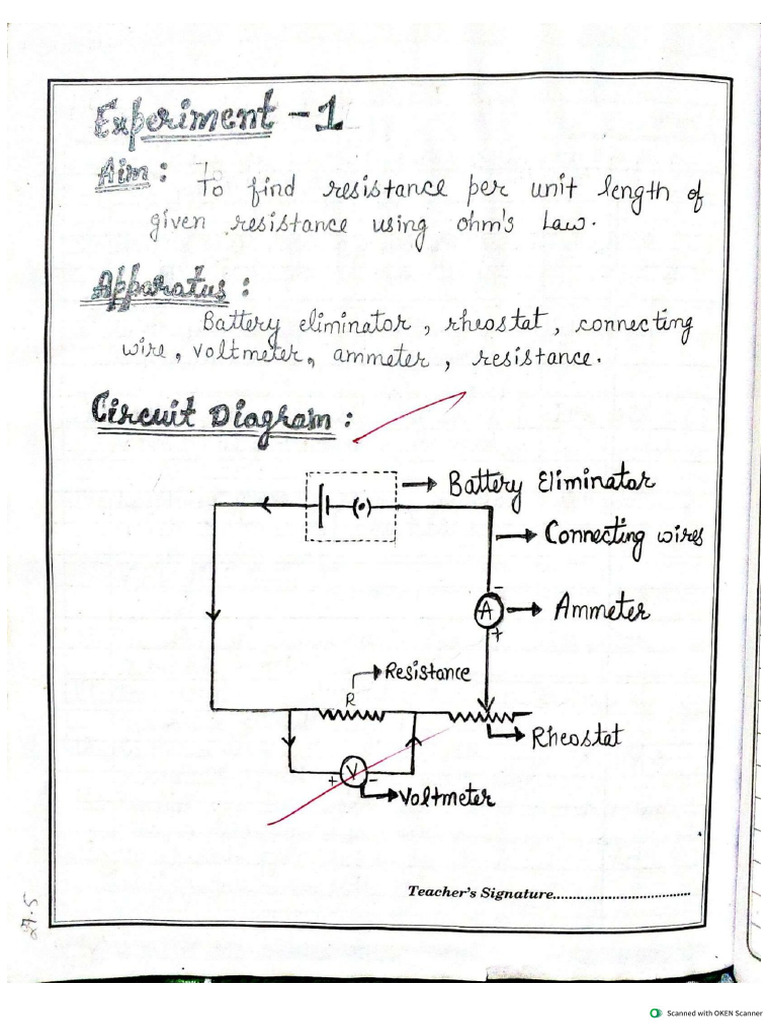 Experiment - 1
Aim : To find resistance per unit length of
given resistance using ohm's Law.
Apparatus :
Battery eliminator, rheostat, connecting
wire, voltmeter, ammeter, resistance.
Circuit Diagram :
Battery Eliminator
Connecting wires
-
A Ammeter
+
Resistance
R
Rheostat
+ V -
Voltmeter
Teacher's Signature
27.5
Scanned with OKEN Scanner